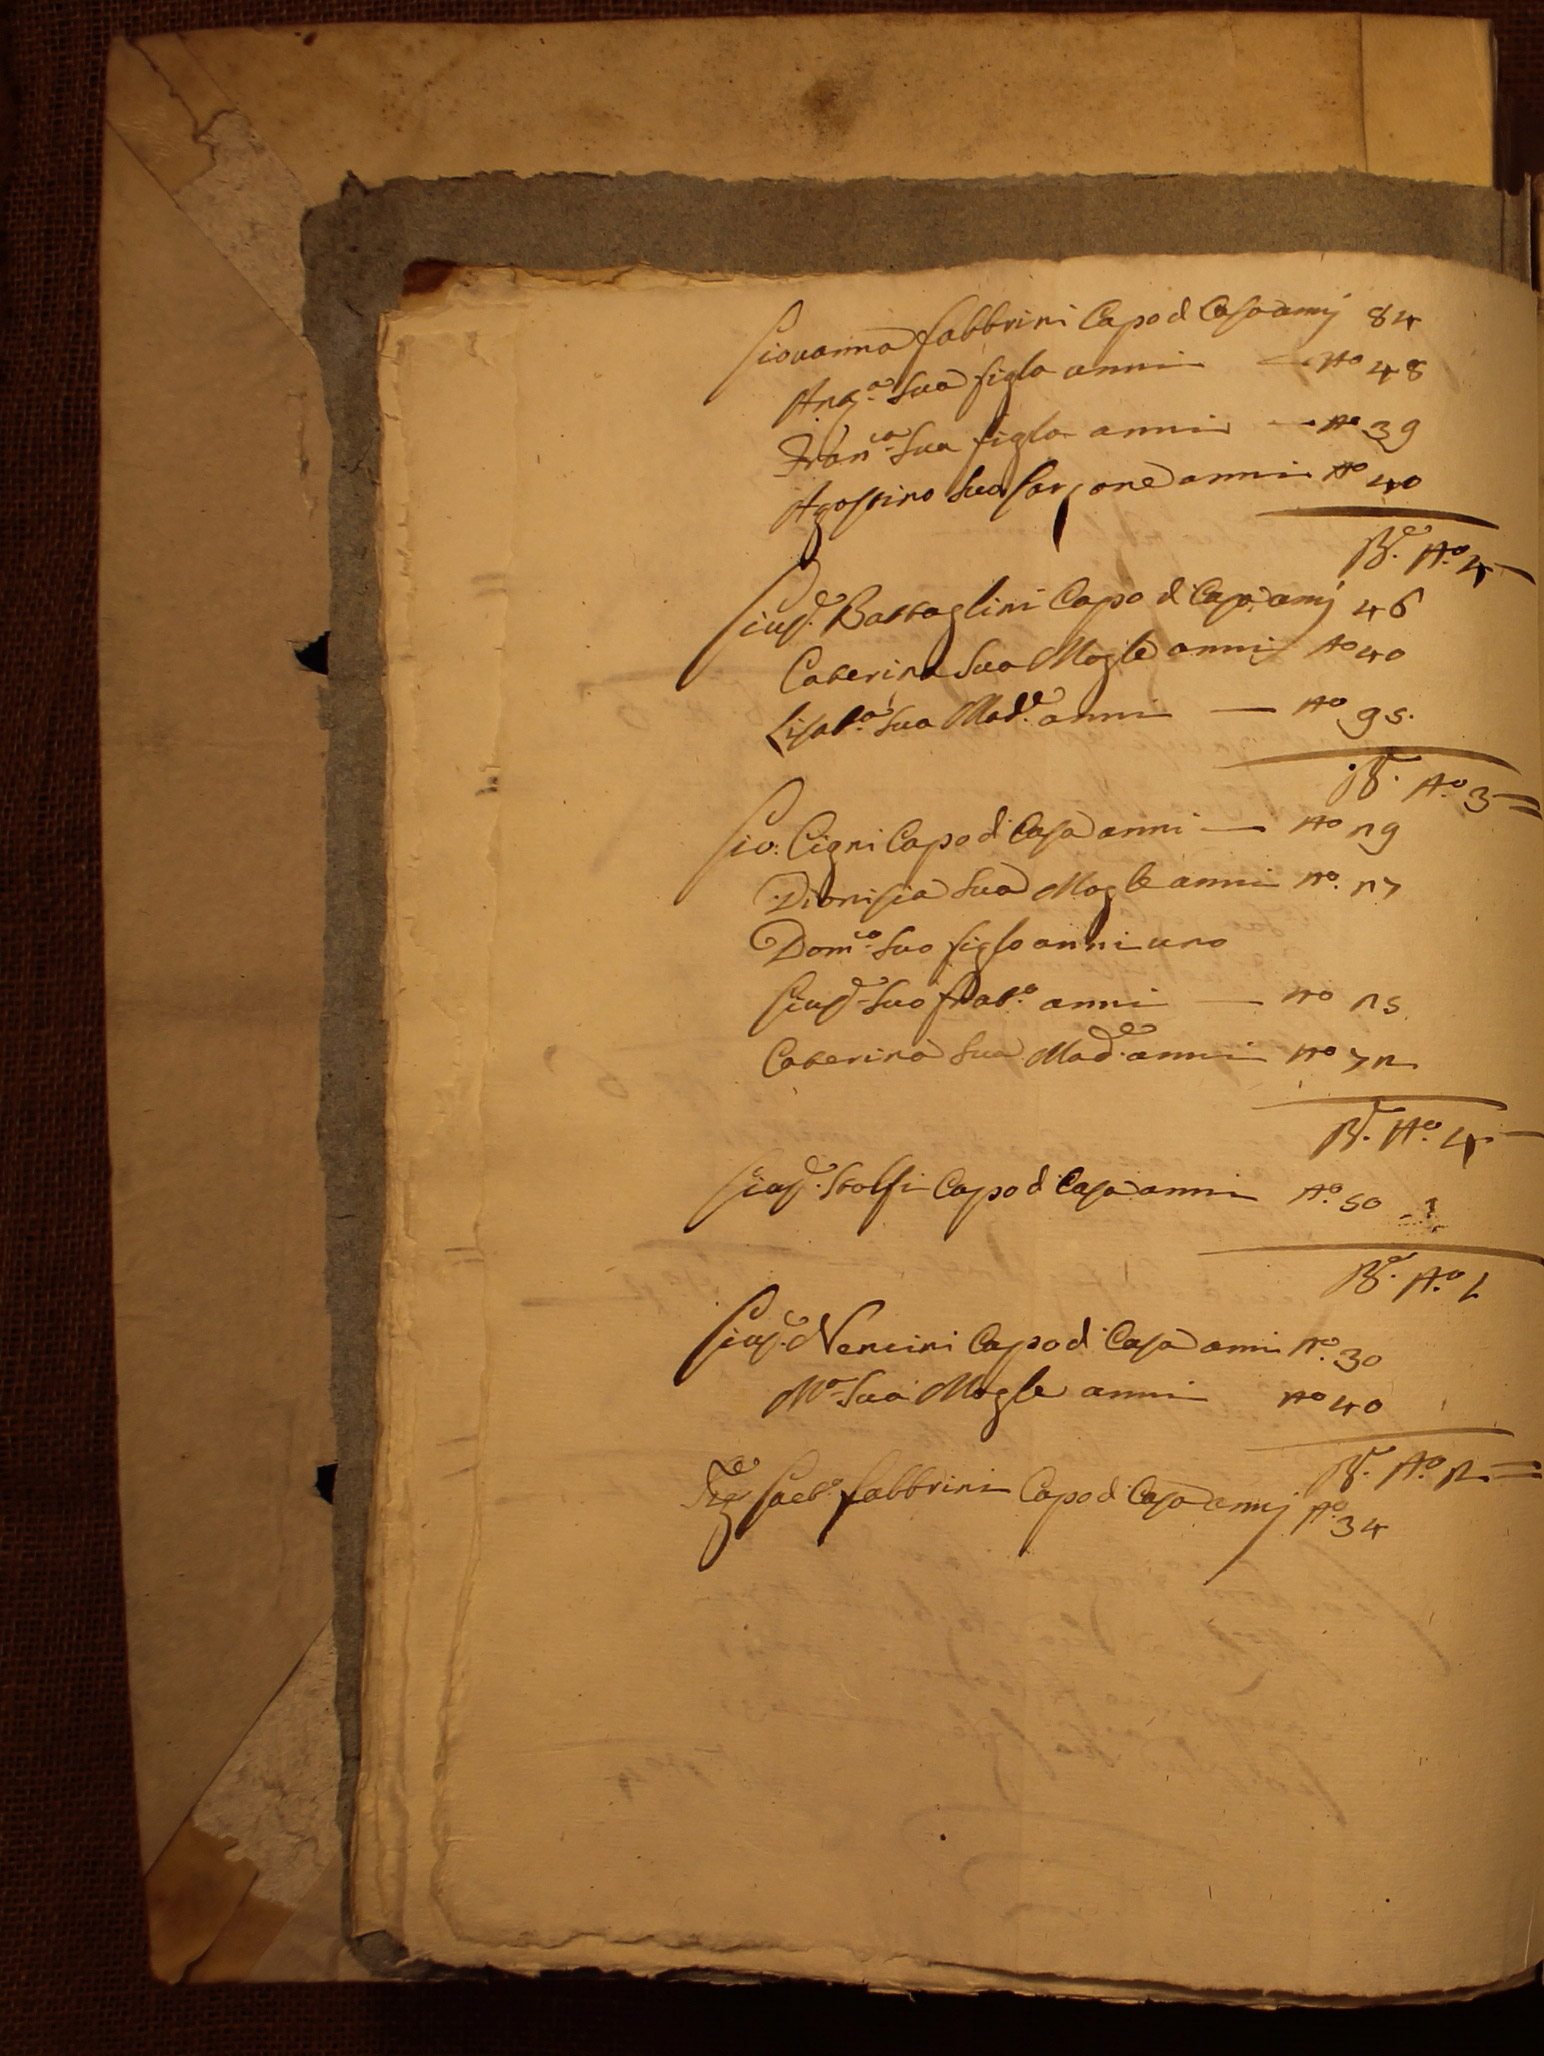 Giovanna Fabbrini Capo d Casa annj 84
Ang.a Sua figla anni — No 48
Fran.ca Sua figla anni — No 39
Agostino Suo Garzone anni No 40
No. 4
Gius.e Battaglini Capo d Casa annj 46
Caterina Sua Mogle anni No 40
Lisab.a Sua Mad.e anni — No 95.
No. 3
Gio. Cigni Capo d Casa anni — No 29
Dionisia Sua Mogle anni No. 27
Dom.co Suo figlo anni uno
Gius.e Suo frat.o anni — No 25
Caterina Sua Mad.e anni No 72
No. 4
Gius.e Stolfi Capo d Casa anni No. 50
No. 1
Gius.e Nencini Capo d Casa anni No. 30
M.a Sua Mogle anni No 40
No. 2
Gaet.o Fabbrini Capo d Casa annj No. 34